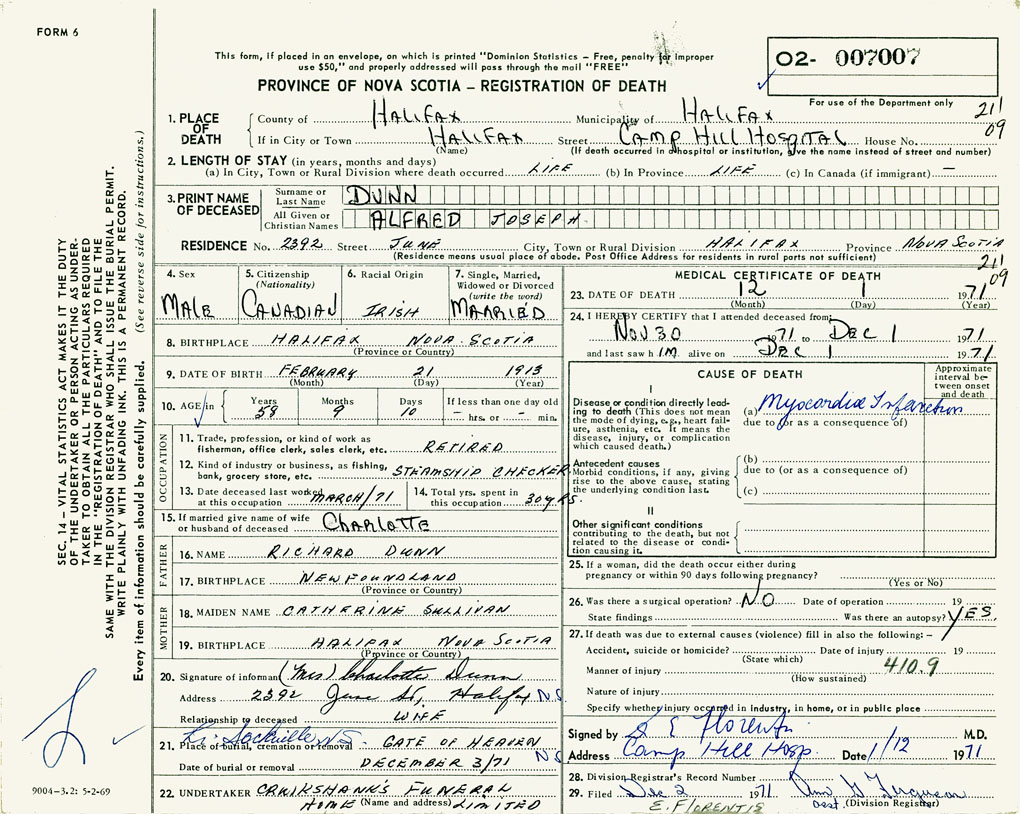 FORM 6
This form, if placed in an envelope, on which is printed "Dominion Statistics – Free, penalty for improper
use $50," and properly addressed will pass through the mail "FREE"
02- 007007
For use of the Department only
PROVINCE OF NOVA SCOTIA – REGISTRATION OF DEATH
211
09
1. PLACE OF DEATH
County of HALIFAX Municipality of HALIFAX
If in City or Town HALIFAX Street CAMP HILL HOSPITAL House No.
(Name) (If death occurred in a hospital or institution, give the name instead of street and number)
2. LENGTH OF STAY (in years, months and days)
(a) In City, Town or Rural Division where death occurred LIFE (b) In Province LIFE (c) In Canada (if immigrant) —
3. PRINT NAME OF DECEASED
Surname or Last Name DUNN
All Given or Christian Names ALFRED JOSEPH
RESIDENCE No. 2392 Street JUNE City, Town or Rural Division HALIFAX Province NOVA SCOTIA
(Residence means usual place of abode. Post Office Address for residents in rural parts not sufficient)
211
09
4. Sex MALE
5. Citizenship (Nationality) CANADIAN
6. Racial Origin IRISH
7. Single, Married, Widowed or Divorced (write the word) MARRIED
8. BIRTHPLACE HALIFAX NOVA SCOTIA
(Province or Country)
9. DATE OF BIRTH FEBRUARY 21 1913
(Month) (Day) (Year)
10. AGE in Years 58 Months 9 Days 10 If less than one day old – hrs. or – min.
OCCUPATION
11. Trade, profession, or kind of work as fisherman, office clerk, sales clerk, etc. RETIRED
12. Kind of industry or business, as fishing, bank, grocery store, etc. STEAMSHIP CHECKER
13. Date deceased last worked at this occupation MARCH/71
14. Total yrs. spent in this occupation 30 YRS.
15. If married give name of wife or husband of deceased CHARLOTTE
FATHER
16. NAME RICHARD DUNN
17. BIRTHPLACE NEWFOUNDLAND
(Province or Country)
MOTHER
18. MAIDEN NAME CATHERINE SULLIVAN
19. BIRTHPLACE HALIFAX NOVA SCOTIA
(Province or Country)
20. Signature of informant (Mrs) Charlotte Dunn
Address 2392 June St, Halifax N.S.
Relationship to deceased WIFE
Sackville NS
21. Place of burial, cremation or removal - GATE OF HEAVEN
Date of burial or removal DECEMBER 3/71 N.S
22. UNDERTAKER CRUIKSHANKS FUNERAL
HOME (Name and address) LIMITED
MEDICAL CERTIFICATE OF DEATH
23. DATE OF DEATH 12 1 1971
(Month) (Day) (Year)
24. I HEREBY CERTIFY that I attended deceased from:
NOV 30 1971 to DEC 1 1971
and last saw h IM alive on DEC 1 1971
CAUSE OF DEATH
Approximate interval between onset and death
I
Disease or condition directly leading to death (This does not mean the mode of dying, e.g., heart failure, asthenia, etc. It means the disease, injury, or complication which caused death.)
(a) Myocardial Infarction
due to (or as a consequence of)
Antecedent causes
Morbid conditions, if any, giving rise to the above cause, stating the underlying condition last.
(b)
due to (or as a consequence of)
(c)
II
Other significant conditions
contributing to the death, but not related to the disease or condition causing it.
25. If a woman, did the death occur either during
pregnancy or within 90 days following pregnancy?
(Yes or No)
26. Was there a surgical operation? NO Date of operation 19
State findings Was there an autopsy? YES.
27. If death was due to external causes (violence) fill in also the following: –
Accident, suicide or homicide? Date of injury 19
(State which)
Manner of injury 410.9
(How sustained)
Nature of injury
Specify whether injury occurred in industry, in home, or in public place
Signed by E Florentis M.D.
Address Camp Hill Hosp. Date 1/12 1971
28. Division Registrar's Record Number
29. Filed Dec 2 1971 Ann G Ferguson
E. FLORENTIS asst. (Division Registrar)
SEC. 14 – VITAL STATISTICS ACT MAKES IT THE DUTY
OF THE UNDERTAKER OR PERSON ACTING AS UNDER-
TAKER TO OBTAIN ALL THE PARTICULARS REQUIRED
IN THE "REGISTRATION OF DEATH" AND TO FILE THE
SAME WITH THE DIVISION REGISTRAR WHO SHALL ISSUE THE BURIAL PERMIT.
WRITE PLAINLY WITH UNFADING INK. THIS IS A PERMANENT RECORD.
Every item of information should be carefully supplied. (See reverse side for instructions.)
9004-3.2: 5-2-69